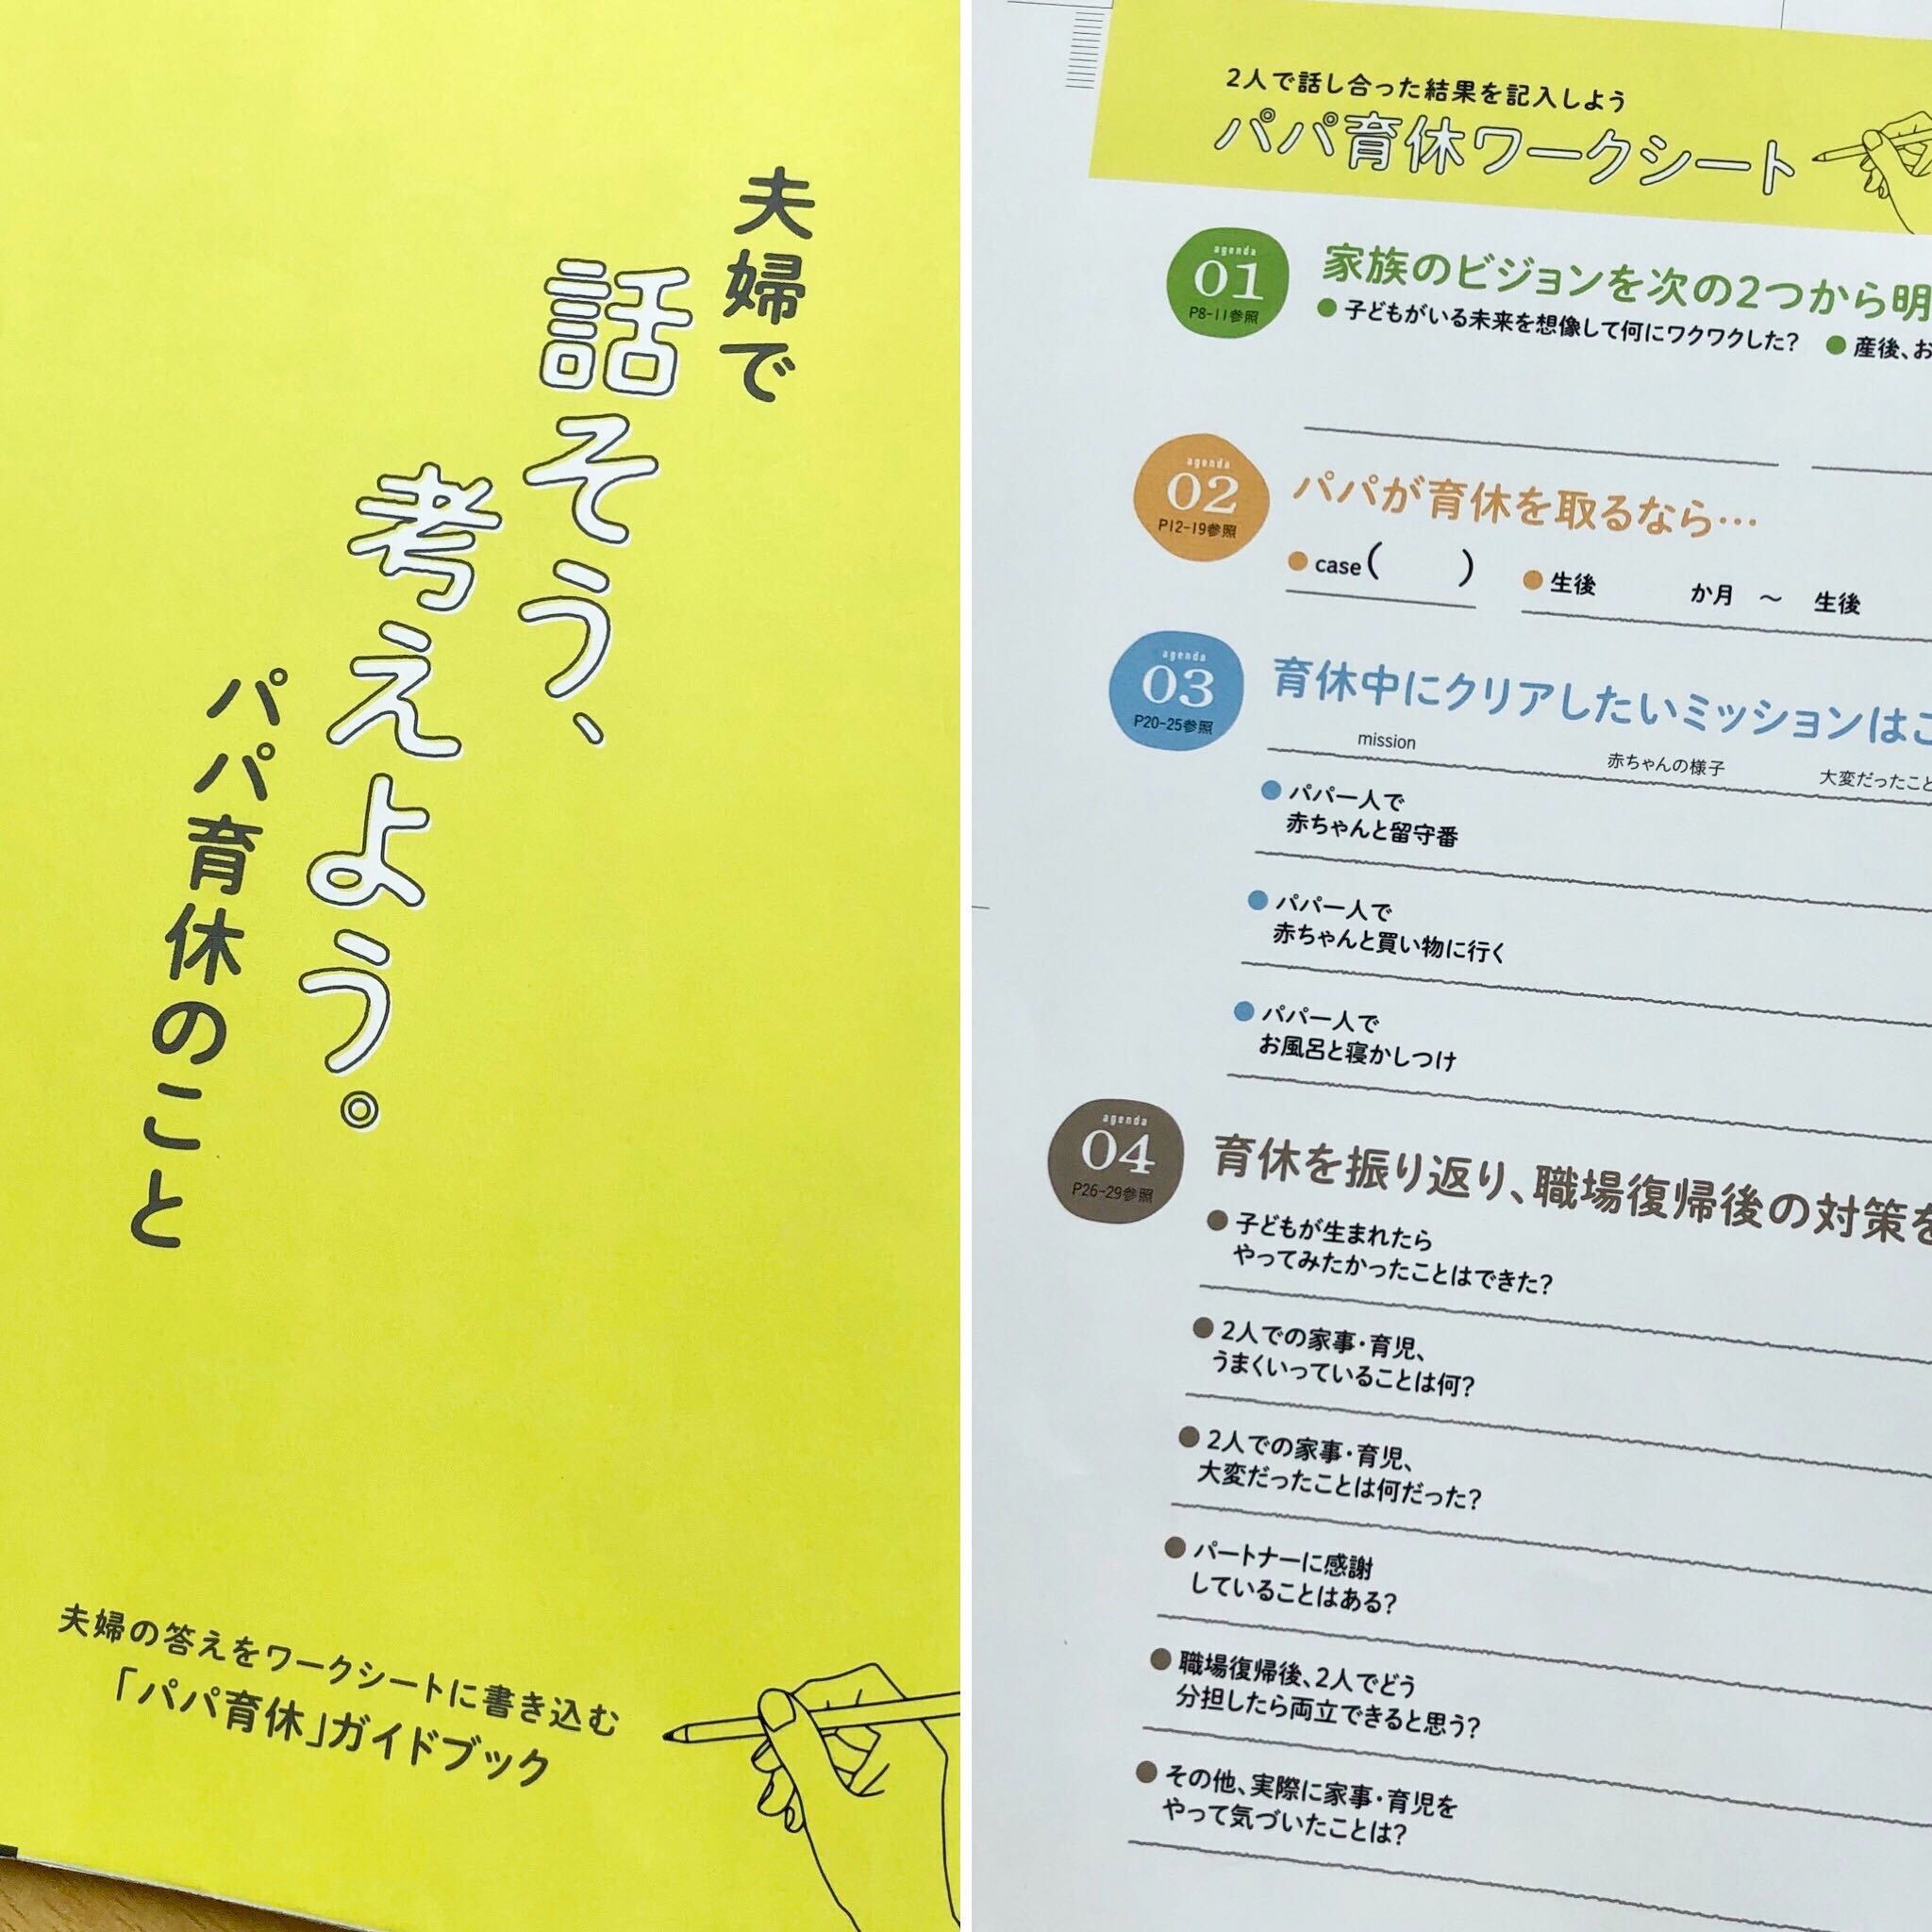 夫婦で
話そう、
考えよう。
パパ育休のこと
夫婦の答えをワークシートに書き込む
「パパ育休」ガイドブック
2人で話し合った結果を記入しよう
パパ育休ワークシート
agenda
01
P8-11参照
家族のビジョンを次の2つから明
●子どもがいる未来を想像して何にワクワクした? ●産後、お
agenda
02
P12-19参照
パパが育休を取るなら…
●case( ) ●生後 か月 〜 生後
agenda
03
P20-25参照
育休中にクリアしたいミッションはこ
mission 赤ちゃんの様子 大変だったこと
●パパ一人で
赤ちゃんと留守番
●パパ一人で
赤ちゃんと買い物に行く
●パパ一人で
お風呂と寝かしつけ
agenda
04
P26-29参照
育休を振り返り、職場復帰後の対策を
●子どもが生まれたら
やってみたかったことはできた?
●2人での家事・育児、
うまくいっていることは何?
●2人での家事・育児、
大変だったことは何だった?
●パートナーに感謝
していることはある?
●職場復帰後、2人でどう
分担したら両立できると思う?
●その他、実際に家事・育児を
やって気づいたことは?